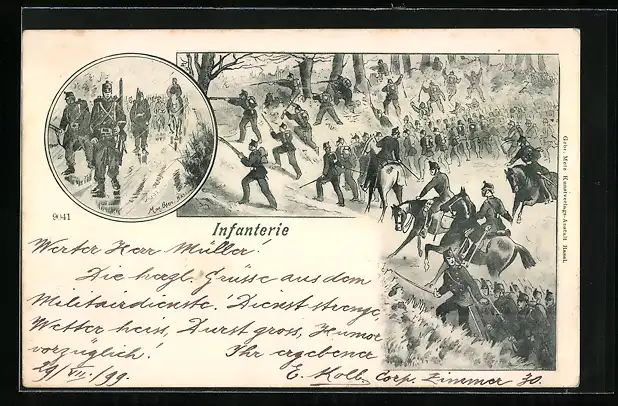 9041
Infanterie
Gebr. Metz Kunstverlags-Anstalt Basel.
Werter Herr Müller!
Die herzl. Grüsse aus dem
Militairdienste! Dienst strenge,
Wetter heiss, Durst gross, Humor
vorzüglich! Ihr ergebener
29/VII./99. E. Kolb, Corp. Zimmer 30.